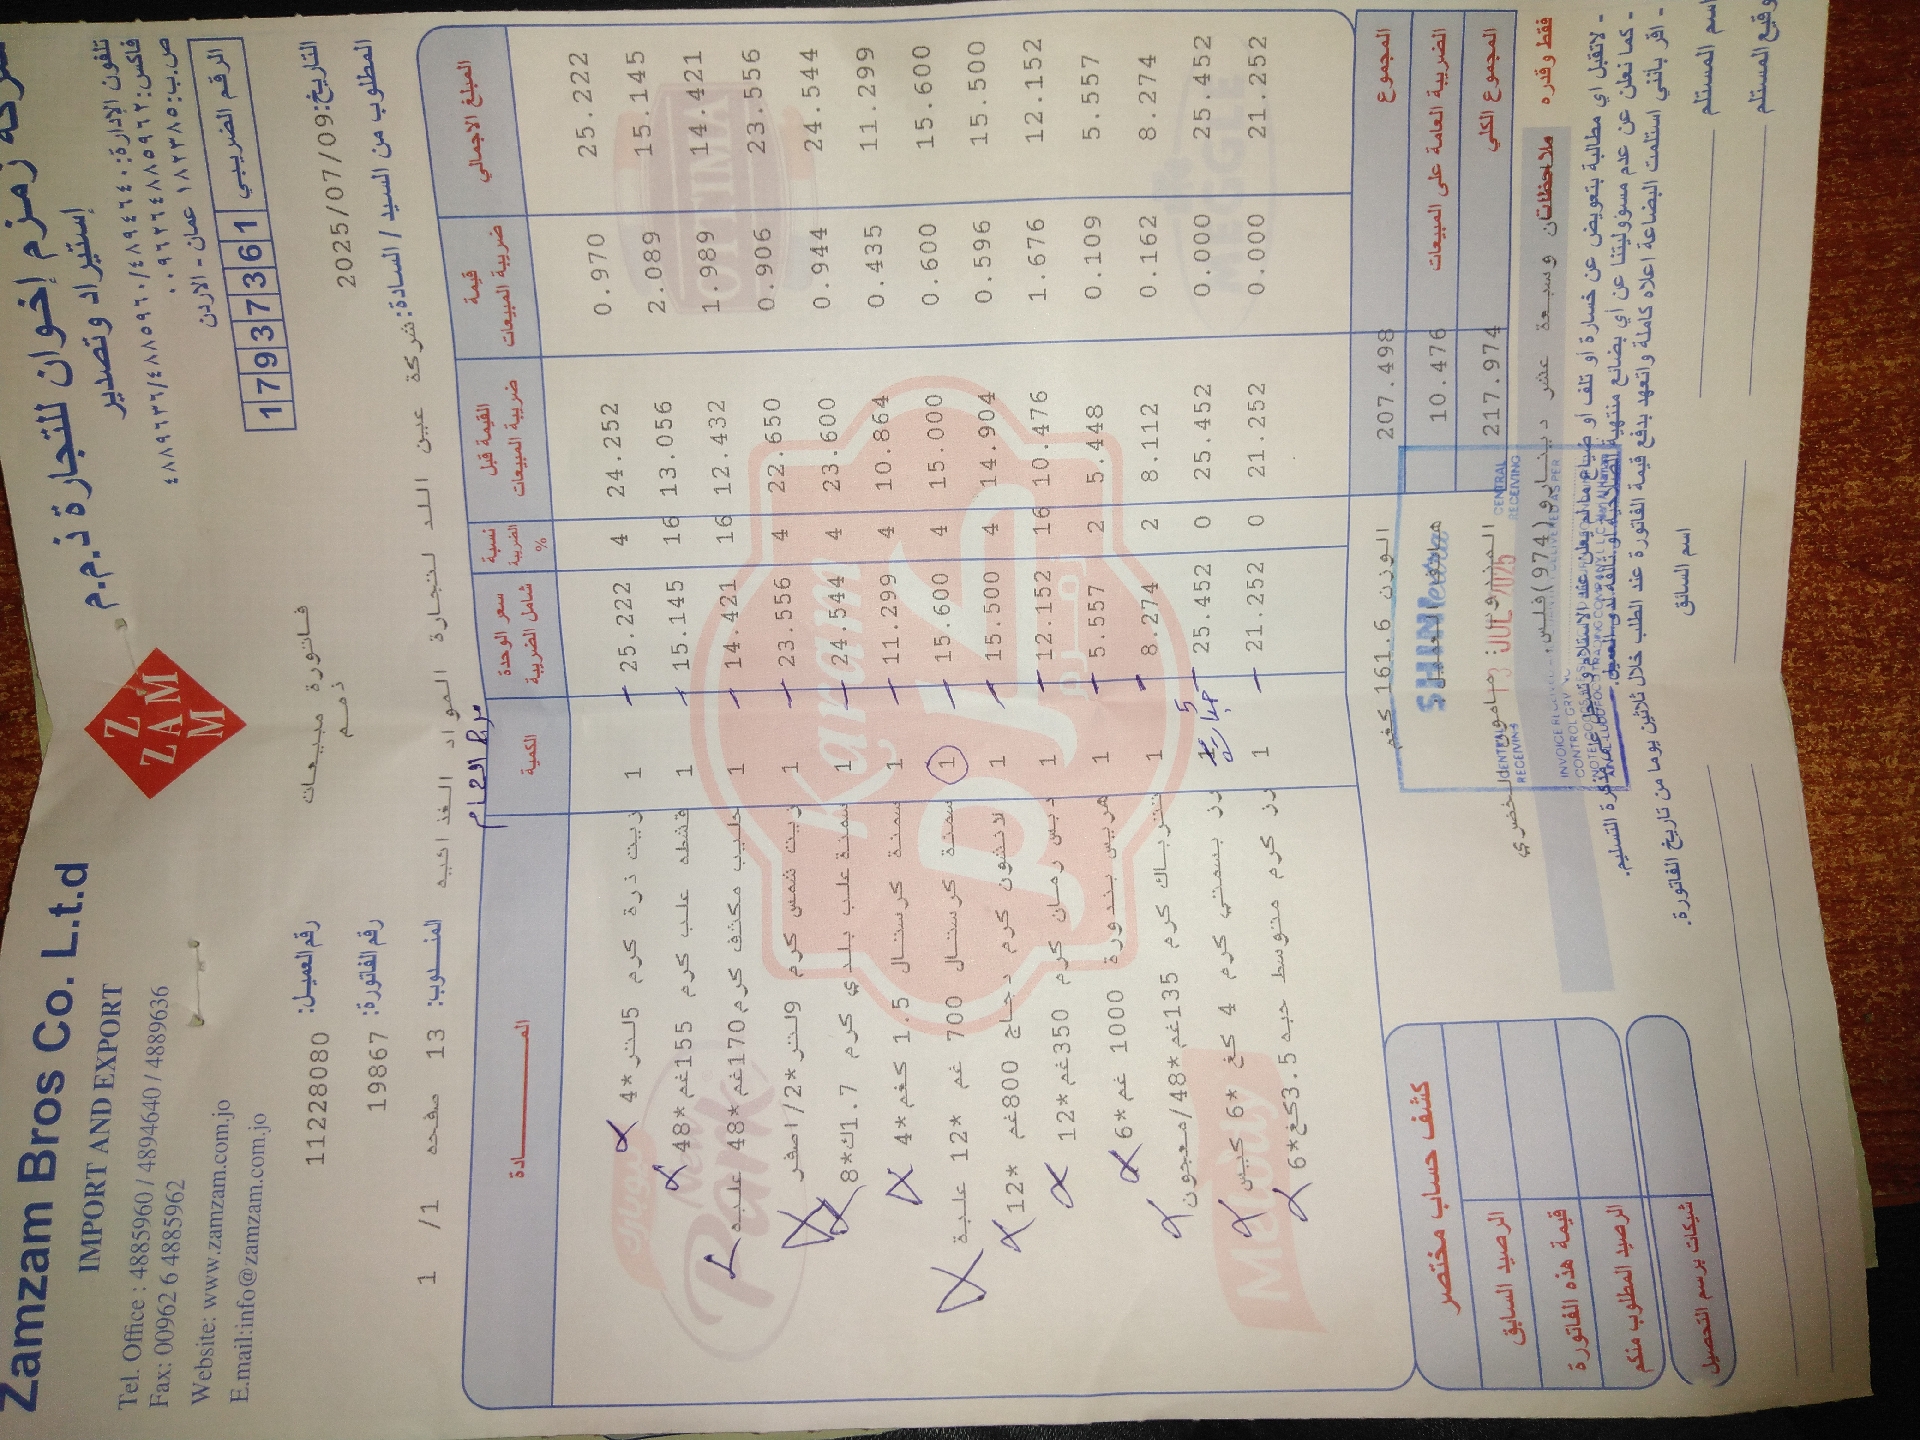 Zamzam Bros Co. L.t.d
IMPORT AND EXPORT
Tel. Office : 4885960 / 4894640 / 4889636
Fax: 00962 6 4885962
Website: www.zamzam.com.jo
E.mail:info@zamzam.com.jo
Z
ZAM
M
شركة زمزم إخوان للتجارة ذ.م.م
إستيراد وتصدير
تلفون الإدارة: ٤٨٨٩٦٣٦/٤٨٨٥٩٦٠/٤٨٩٤٦٤٠
فاكس: ٠٠٩٦٢٦٤٨٨٥٩٦٢
ص.ب: ١٨٢٣٨٥ عمان - الاردن
الرقم الضريبي 1 7 9 3 7 3 6 1
فاتورة مبيعات
ذمم
رقم العميل: 11228080
رقم الفاتورة: 19867
التاريخ: 2025/07/09
المطلوب من السيد / السادة: شركة عين اللد لتجارة المواد الغذائيه
المندوب: 13 صفحه 1/ 1
المـــــادة الكمية سعر الوحدة شامل الضريبة نسبة الضريبة % القيمة قبل ضريبة المبيعات قيمة ضريبة المبيعات المبلغ الاجمالي
زيت ذرة كرم 5لتر*4 1 25.222 4 24.252 0.970 25.222
قشطه علب كرم 155غم*48 1 15.145 16 13.056 2.089 15.145
حليب مكثف كرم 170غم*48 علبه 1 14.421 16 12.432 1.989 14.421
زيت شمس كرم 9لتر*2/اصفر 1 23.556 4 22.650 0.906 23.556
سمنة علب بلدي كرم 1.7ك*8 1 24.544 4 23.600 0.944 24.544
سمنة كرستال 1.5 كغم*4 1 11.299 4 10.864 0.435 11.299
سمنة كرستال 700 غم *12 علبة 1 15.600 4 15.000 0.600 15.600
لانشون كرم دجاج 800غم *12 1 15.500 4 14.904 0.596 15.500
دبس رمان كرم 350غم*12 1 12.152 16 10.476 1.676 12.152
هريس بندورة 1000 غم*6 1 5.557 2 5.448 0.109 5.557
تترباك كرم 135غم*48/معجون 1 8.274 2 8.112 0.162 8.274
رز بسمتي كرم 4 كغ *6 كيس 1 25.452 0 25.452 0.000 25.452
رز كرم متوسط حبه 3.5كغ*6 1 21.252 0 21.252 0.000 21.252
5
karam
كرم
OPTIMA
MEGGE
الوزن 161.6 كغم
المجموع 207.498
الضريبة العامة على المبيعات 10.476
المجموع الكلي 217.974
CENTRAL RECEIVING
CENTRAL RECEIVING
JUL 2025
فقط وقدره مئتان وسبعة عشر دينار و(974)فلس
ملاحظات
- لاتقبل اي مطالبة بتعويض عن خسارة أو تلف او ضياع مالم يعلن عند الاستلام ويسجل على مذكرة التسليم.
- كما نعلن عن عدم مسؤوليتنا عن أي بضائع منتهية الصلاحية أو تالفة لدى العميل.
- اقر بأنني استلمت البضاعة اعلاه كاملة واتعهد بدفع قيمة الفاتورة عند الطلب خلال ثلاثين يوما من تاريخ الفاتورة.
اسم المستلم
اسم السائق
توقيع المستلم
كشف حساب مختصر
الرصيد السابق
قيمة هذه الفاتورة
الرصيد المطلوب منكم
شيكات برسم التحصيل